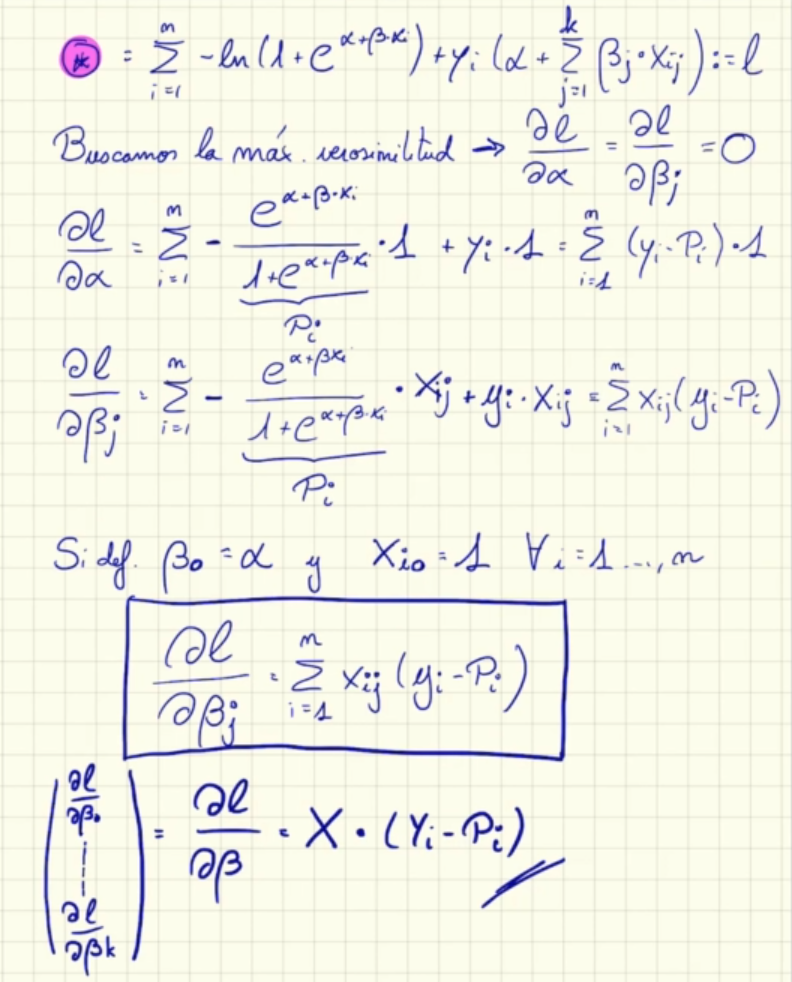 (*) = ∑_{i=1}^{n} -ln(1+e^{α+β·x_i}) + y_i (α + ∑_{j=1}^{k} β_j·x_{ij}) := l
Buscamos la máx. verosimilitud → ∂l/∂α = ∂l/∂β_j = 0
∂l/∂α = ∑_{i=1}^{n} - e^{α+β·x_i}/(1+e^{α+β·x_i}) · 1 + y_i · 1 = ∑_{i=1}^{n} (y_i-P_i)·1
P_i
∂l/∂β_j = ∑_{i=1}^{n} - e^{α+βx_i}/(1+e^{α+β·x_i}) · x_{ij} + y_i·x_{ij} = ∑_{i=1}^{n} x_{ij}(y_i-P_i)
P_i
Si def. β_0 = α y x_{i0} = 1 ∀i=1...,n
∂l/∂β_j = ∑_{i=1}^{n} x_{ij} (y_i-P_i)
(∂l/∂β_0 ⋮ ∂l/∂β_k) = ∂l/∂β = X · (Y_i-P_i)